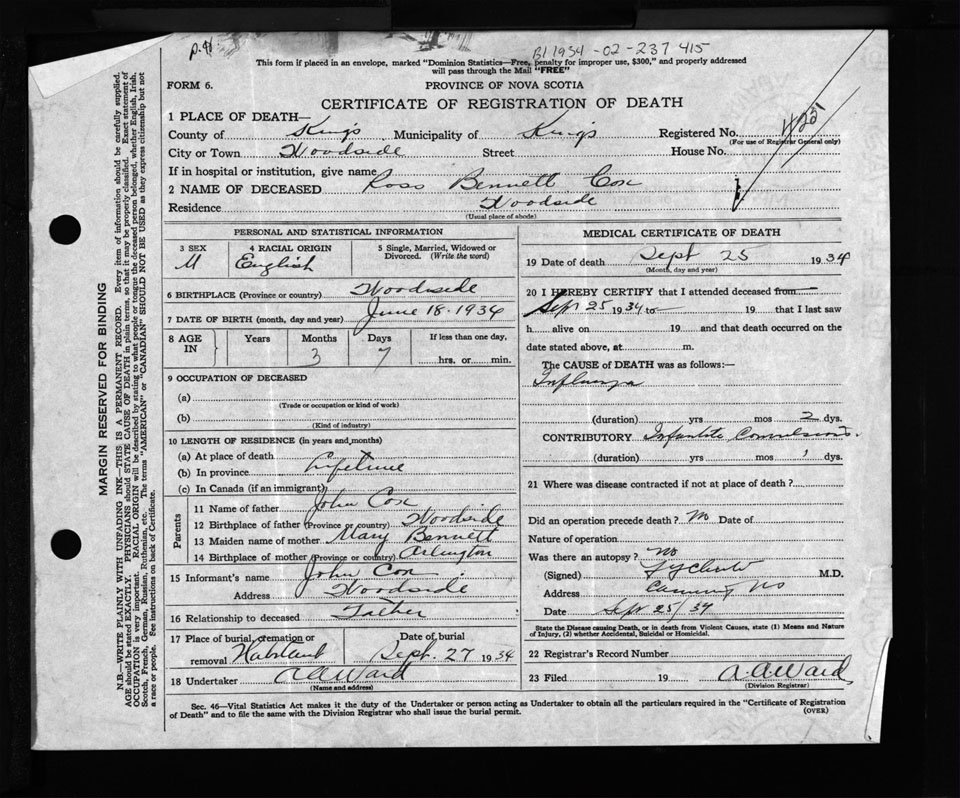 p. 41
B1 1934 -02-237 415
This form if placed in an envelope, marked "Dominion Statistics—Free, penalty for improper use, $300," and properly addressed
will pass through the Mail "FREE"
FORM 6.
PROVINCE OF NOVA SCOTIA
CERTIFICATE OF REGISTRATION OF DEATH
1 PLACE OF DEATH—
County of Kings Municipality of Kings Registered No.
(For use of Registrar General only)
City or Town Woodside Street House No.
If in hospital or institution, give name
2 NAME OF DECEASED Ross Bennett Cox
Residence Woodside
(Usual place of abode)
PERSONAL AND STATISTICAL INFORMATION
3 SEX M
4 RACIAL ORIGIN English
5 Single, Married, Widowed or Divorced. (Write the word)
6 BIRTHPLACE (Province or country) Woodside
7 DATE OF BIRTH (month, day and year) June 18 · 1934
8 AGE IN Years Months 3 Days 7 If less than one day, hrs. or min.
9 OCCUPATION OF DECEASED
(a)
(Trade or occupation or kind of work)
(b)
(Kind of industry)
10 LENGTH OF RESIDENCE (in years and months)
(a) At place of death
(b) In province Lifetime
(c) In Canada (if an immigrant)
Parents
11 Name of father John Cox
12 Birthplace of father (Province or country) Woodside
13 Maiden name of mother Mary Bennett
14 Birthplace of mother (Province or country) Arlington
15 Informant's name John Cox
Address Woodside
16 Relationship to deceased Father
17 Place of burial, cremation or removal
Date of burial Sept. 27 1934
18 Undertaker A A Ward
(Name and address)
MEDICAL CERTIFICATE OF DEATH
19 Date of death Sept 25 1934
(Month, day and year)
20 I HEREBY CERTIFY that I attended deceased from
Sept 25 1934 to 19 that I last saw
h alive on 19 and that death occurred on the
date stated above, at m.
The CAUSE OF DEATH was as follows:—
Influenza
(duration) yrs mos 2 dys.
CONTRIBUTORY Infantile Convulsions.
(duration) yrs mos 1 dys.
21 Where was disease contracted if not at place of death?
Did an operation precede death? No Date of
Nature of operation
Was there an autopsy? No
(Signed) M.D.
Address Canning NS
Date Sept 25/34
State the Disease causing Death, or in Death from Violent Causes, state (1) Means and Nature
of Injury, (2) whether Accidental, Suicidal or Homicidal.
22 Registrar's Record Number
23 Filed 19 A. A Ward
(Division Registrar)
Sec. 46—Vital Statistics Act makes it duty of the Undertaker or person acting as Undertaker to obtain all the particulars required in the "Certificate of Registration
of Death" and to file the same with the Division Registrar who shall issue the burial permit.
(OVER)
MARGIN RESERVED FOR BINDING
N.B.—WRITE PLAINLY WITH UNFADING INK—THIS IS A PERMANENT RECORD. Every item of information should be carefully supplied.
AGE should be stated EXACTLY. PHYSICIANS should STATE CAUSE OF DEATH in plain terms, so that it may be properly classified. Exact statement of
OCCUPATION is very important. RACIAL ORIGIN will be described by stating to what people or tongue the deceased person belonged, whether English, Irish,
Scotch, French, German, Russian, Ruthenian, etc. The terms "AMERICAN" or "CANADIAN" SHOULD NOT BE USED as they express citizenship but not
a race or people. See instructions on back of Certificate.